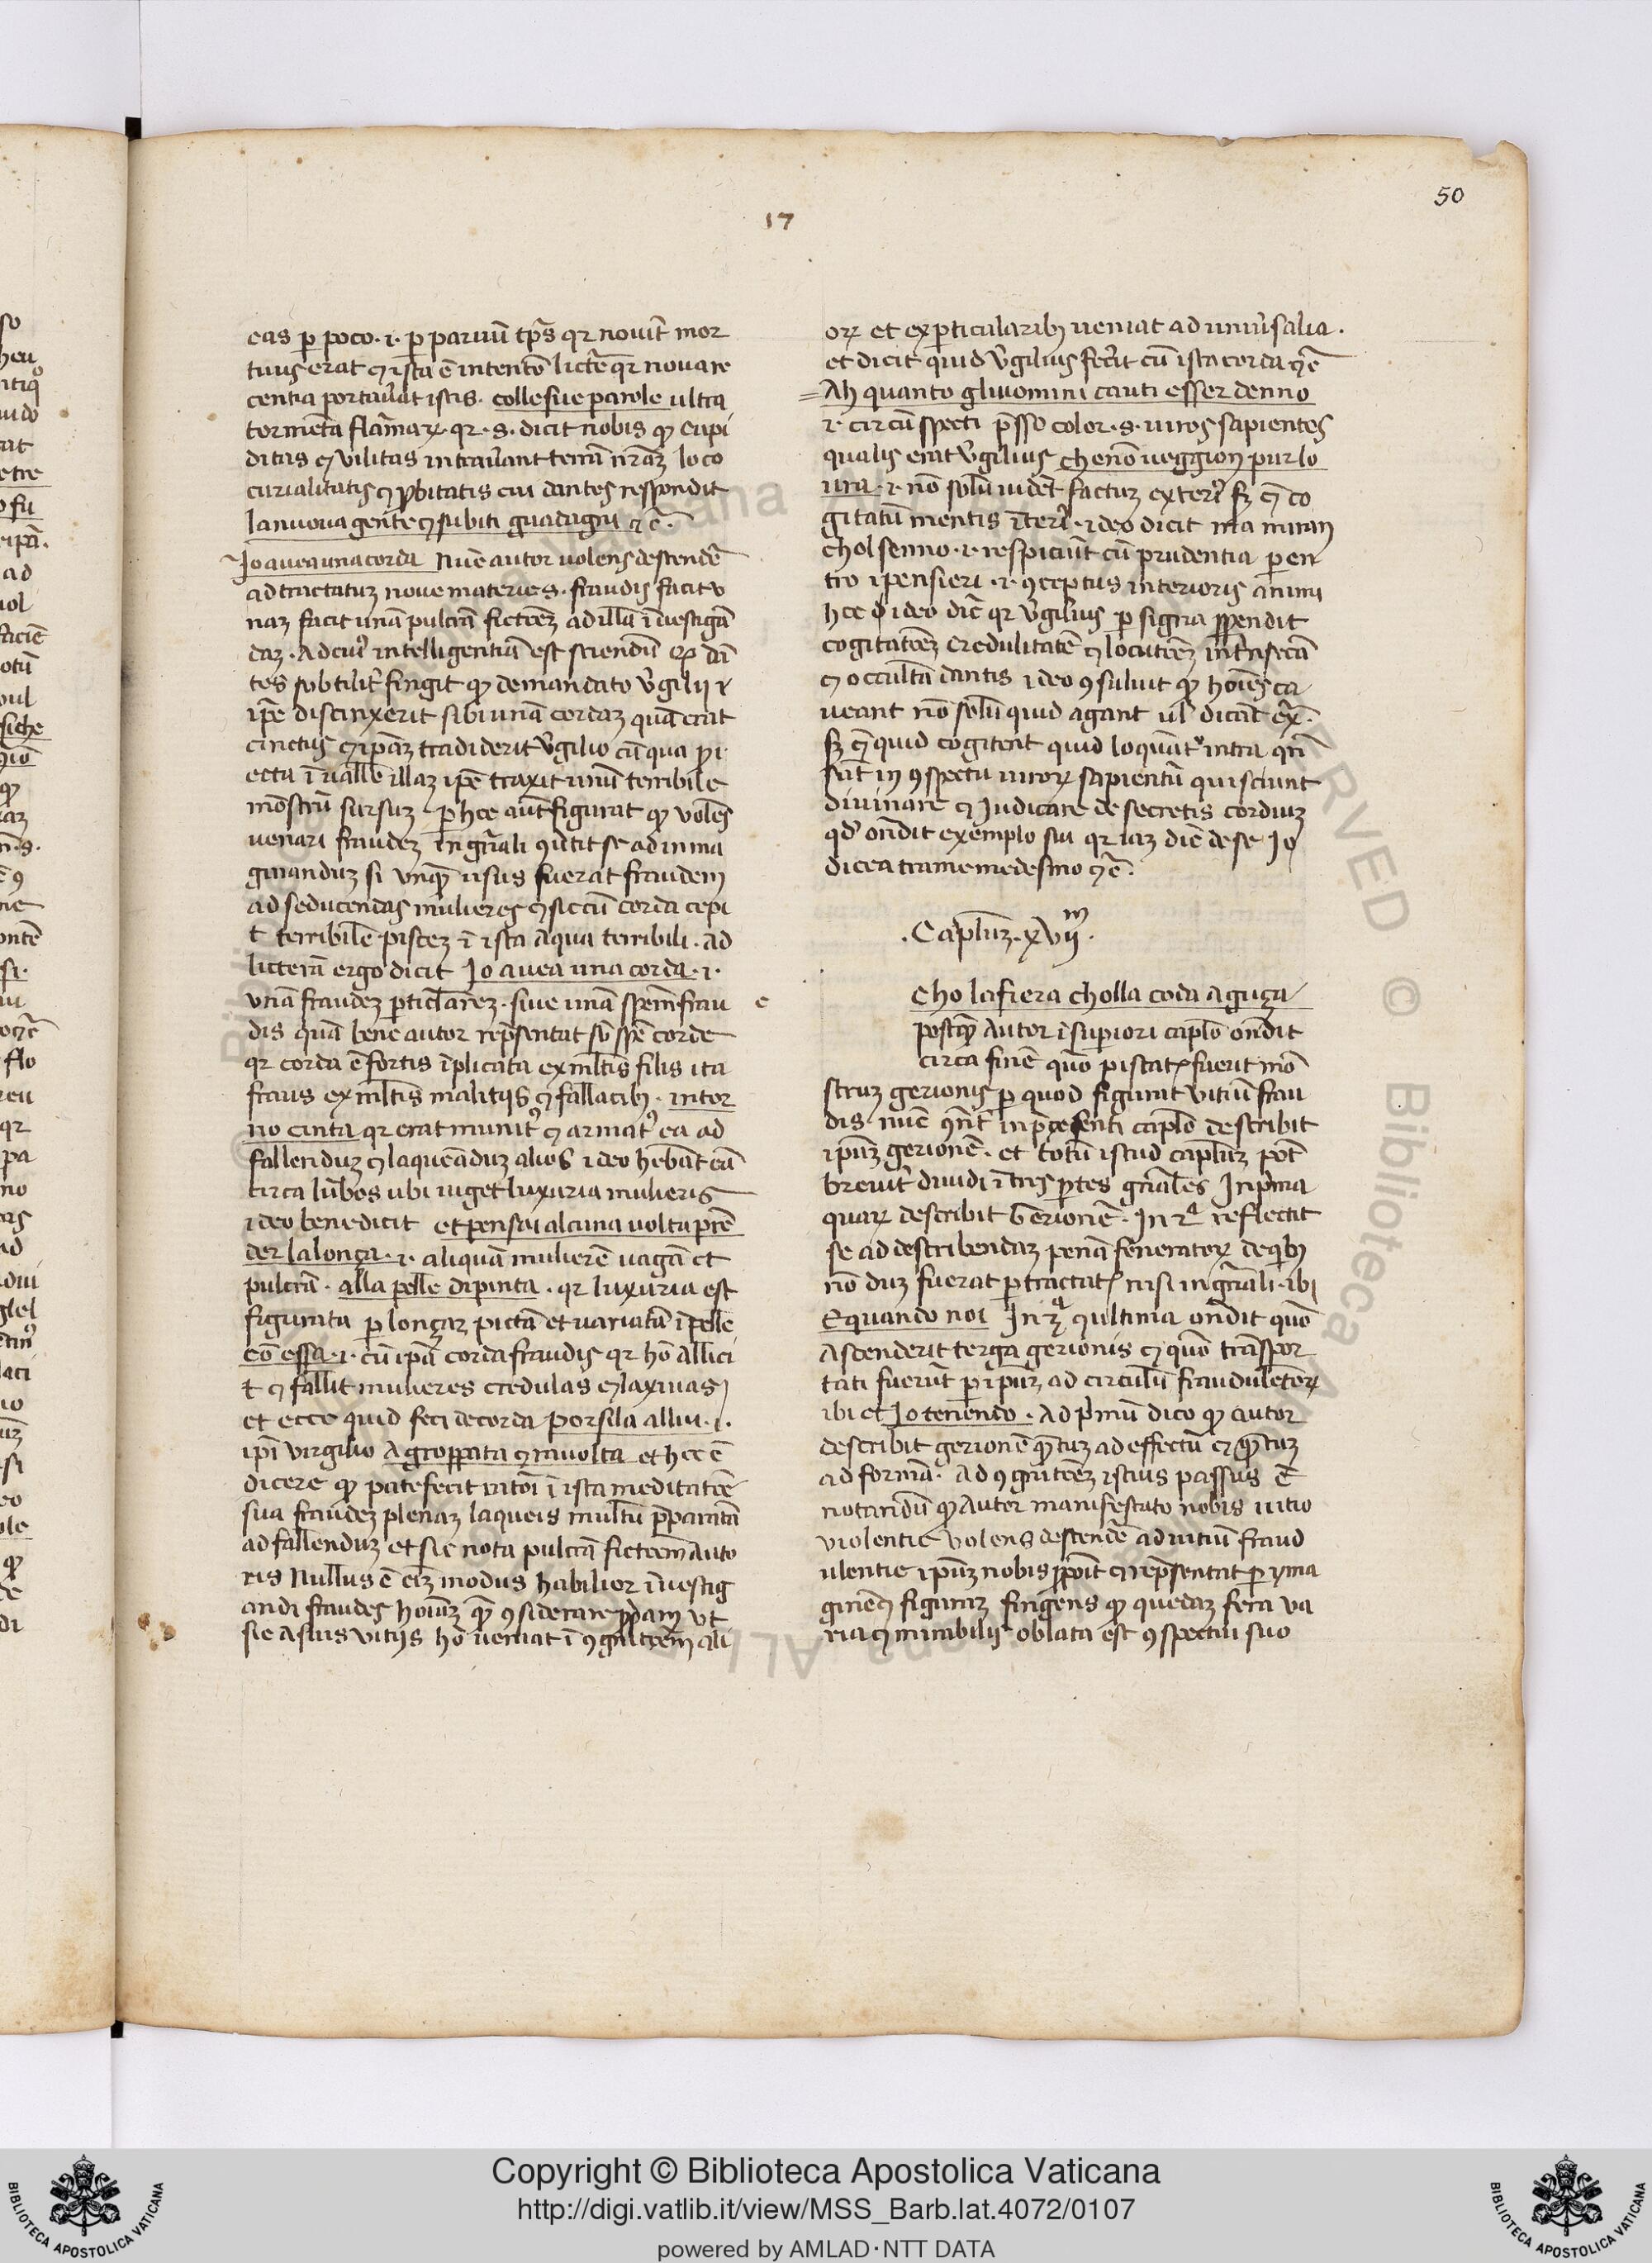 50
17
eas ꝑ poco .i. ꝑ paruũ tꝑs qꝛ nouit̾ mor
tuus erat ⁊ ista ẽ intentõ lict̾e qꝛ noua re
centia portau̾at istis. colle sue parole ultra
tormẽta flãmaꝝ. qꝛ .s. dicit nobis ꝙ cupi
ditas ⁊ vilitas intrau̾ant terrã nr̃aꝫ loco
curialitatis ⁊ ꝓbitatis cui dantes respondit
la nuoua gente ⁊ subiti guadagni ⁊c̃.
Io auea una corda Nũc autor uolens descende̾
ad tractatuꝫ noue materie .s. fraudis facit v
naꝫ facit unã pulcrã fict̃oeꝫ ad illã ĩuestigã
daꝫ. Ad cuiꝰ intelligentiã est sciendũ ꝙ dã
tes subtilit̾ fingit ꝙ de mandato v̾gilii
ip̃e discinxerit sibi unã cordaꝫ qua erat
cinctus ⁊ ip̃aꝫ tradiderit v̾gilio cũ qua ꝓi
ecta ĩ uallẽ illaꝫ ip̃e traxit unũ terribile
mõstrũ sursuꝫ ꝑ hec aut̃ figurat ꝙ volẽs
uenari fraudeꝫ in gñali ꝯu̾tit se ad inma
ginanduꝫ si vnꝙ̃ usus fuerat fraudem
ad seducendas mulieres ⁊ sic cũ corda cepi
t terribilẽ pisceꝫ ĩ ista aqua terribili. ad
licterã ergo dicit Io auea una corda .i.
vnã fraudeꝫ ꝑticl̃areꝫ. siue unã spẽm frau
dis quã bene autor rep̃sentat sb̃ spẽ corde
qꝛ corda ẽ fortis ĩplicata ex ml̃tis filis ita
fraus ex ml̃tis malitijs ⁊ fallacibꝫ. intor
no cinta qꝛ erat munitꝰ ⁊ armatꝰ ea ad
fallenduꝫ ⁊ laqueãduꝫ alios ideo hẽbat eã
circa lũbos ubi uiget luxuria mulieris
ideo bene dicit et pensai alcuna uolta prẽ
der la lonça .i. aliquã mulierẽ uagã et
pulcrã. alla pelle dipinta. qꝛ luxuria est
figurata ꝑ lonçaꝫ pictã et uariatã ĩ pelle
cõ essa .i. cũ ip̃a corda fraudis qꝛ hõ allici
t ⁊ fallit mulieres credulas ⁊ laxiuas
et ecce quid feci de corda porsila allui .i.
ip̃i virgilio Agroppata ⁊ rauolta et hec ẽ
dicere ꝙ patefecit rat̃oi ĩ ista meditat̃oe
sua fraudeꝫ plenaꝫ laqueis multũ p̃paratã
ad fallenduꝫ et sic nota pulcrã fict̃oem auto
ris Nullus ẽ eĩꝫ modus habilior ĩuestig
andi fraudes hoĩuꝫ ꝙ̃ ꝯsiderare ꝓpriam vt
sic a suis vitijs hõ ueniat ĩ ꝯgnit̃oem ali
oꝝ et ex ꝑticularibꝫ ueniat ad uniu̾salia.
et dicit quid v̾gilius fec̾it cũ ista corda ⁊c̃
Ah quanto gliuomini cauti esser denno
.i. circũspecti p̃sso color .s. uiros sapientes
qualis erat v̾gilius che nõ ueggion pur lo
ura .i. nõ solũ uident factuꝫ exteriꝰ sꝫ ⁊ co
gitatũ mentis ĩteriꝰ. ideo dicit ma miran
chol senno .i. respiciũt cũ prudentia per en
tro i pensieri .i. ꝯceptus interioris animi
hec ideo dic̃ qꝛ v̾gilius ꝑ signa ꝓpendit
cogitat̃oeꝫ credulitatẽ ⁊ locut̃oeꝫ int̾nsecã
⁊ occultã dantis ideo ꝯsuluit ꝙ hoĩes ca
ueant nõ solũ quid agant ul̃ dicãt ex̃ᵃ.
sꝫ ⁊ quid cogitent quid loquãt̾ intra qñ
sũt in ꝯspectu uiroꝝ sapientũ qui sciunt
diuinare ⁊ Iudicare de secretis cordiuꝫ
qd̾ oñdit exemplo sui qꝛ iaꝫ dic̃ de se Io
dicea trame medesmo ⁊c̃.
.Capl̃uꝫ. xvijᵐ.
c
Cho la fiera cholla coda aguça
postꝙ̃ Autor ĩ superiori capl̃o oñdit
circa finẽ quõ piscatꝰ fuerit mõ
struꝫ gerionis ꝑ quod figurat vitiũ frau
dis. nũc ꝯñt̾ in p̃cesenti capl̃o describit
ipũꝫ gerionẽ. et totũ istud capl̃uꝫ põt
breuit̾ diuidi ĩ tres ꝑtes gñales In p̾ma
quaꝝ describit Gerionẽ. In 2ᵃ reflectit
se ad describendaꝫ penã feneratoꝝ de qibꝫ
nõ duꝫ fuerat ꝑtractatꝰ nisi in gñali. ibi
E quando noi In 3ᵃ ⁊ ultima oñdit quõ
ascenderit terga gerionis ⁊ quõ trãspor
tati fuerũt ꝑ ipũꝫ ad circulũ fraudulẽtoꝝ
ibi et Io tenendo. Ad p̾mũ dico ꝙ autor
describit gerionẽ ꝙ̃tuꝫ ad effectũ ⁊ ꝙ̃tuꝫ
ad formã. Ad ꝯgnit̃oeꝫ istius passus ẽ
notandũ ꝙ Autor manifestato nobis uitio
violentie volens descende̾ ad uitiũ fraud
ulentie ipũꝫ nobis ꝓpoĩt ⁊ rep̃sentat ꝑ yma
ginem figuraꝫ fingens ꝙ quedaꝫ fera va
ria ⁊ mirabilis oblata est ꝯspectui suo
Copyright © Biblioteca Apostolica Vaticana
http://digi.vatlib.it/view/MSS_Barb.lat.4072/0107
powered by AMLAD·NTT DATA
BIBLIOTECA APOSTOLICA VATICANA
BIBLIOTECA APOSTOLICA VATICANA